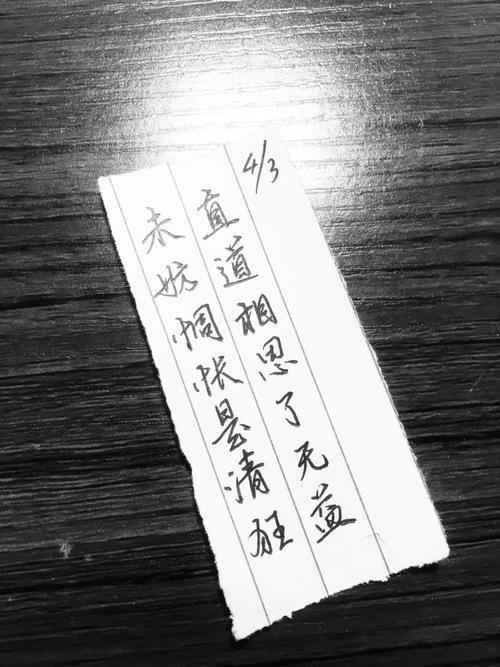 4/3
直道相思了无益
未妨惆怅是清狂